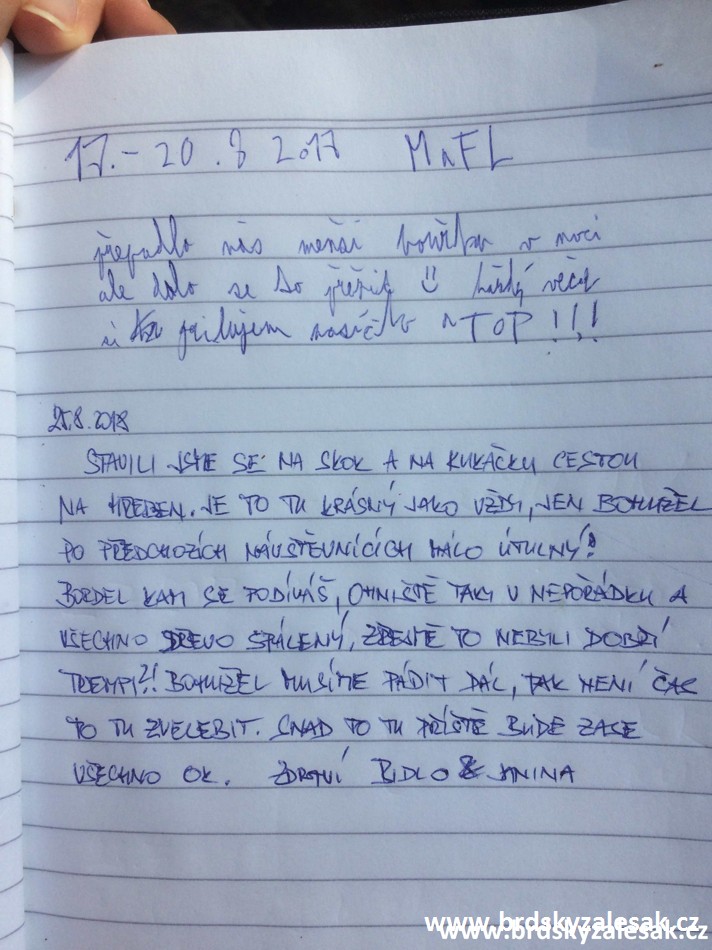 17.-20.8 2017 M n FL
přepadlo nás menší bouřka v noci
ale dalo se to přežít každý večer
si masíčko n TOP!!!
25.8.2018
STAVILI JSME SE NA SKOK A NA KUKAČKU CESTOU
NA HŘEBEN. JE TO TU KRÁSNÝ JAKO VŽDY, JEN BOHUŽEL
PO PŘEDCHOZÍCH NÁVŠTĚVNÍCÍCH MÁLO ÚTULNÝ!
BORDEL KAM SE PODÍVÁŠ, OHNIŠTĚ TAKY V NEPOŘÁDKU A
VŠECHNO DŘEVO SPÁLENÝ, ZŘEJMĚ TO NEBYLI DOBŘÍ
TREMPI?! BOHUŽEL MUSÍME PÁDIT DÁL, TAK NENÍ ČAS
TO TU ZVELEBIT. SNAD TO TU PŘÍŠTĚ BUDE ZASE
VŠECHNO OK. ZDRAVÍ BIDLO & JANINA
www.brdskyzalesak.cz
www.brdskyzalesak.cz